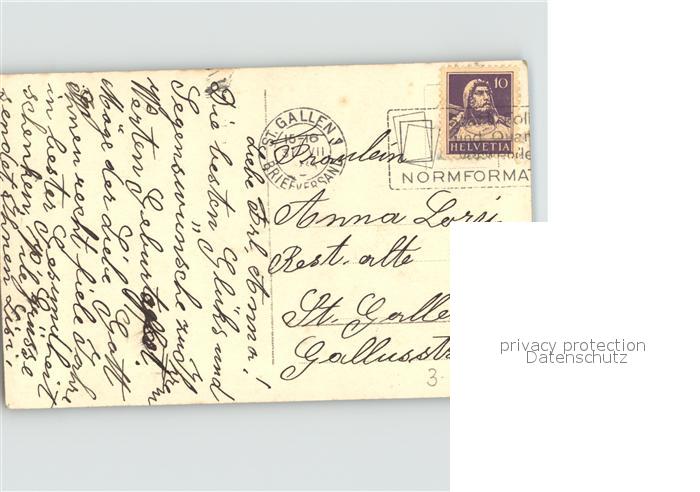 Liebe Frl. Anna!
Die besten Glüks und
Segenswünsche zu Ihrem
Werten Geburtstag.
Möge der Liebe Gott
Ihnen recht fiele Jahre
in bester Gesundheit
schenken. Viele Grüsse
sendet Ihnen
ST. GALLEN 1
16-16
VII
BRIEFVERSAND
10
HELVETIA
NORMFORMA
Fräulein
Anna
Rest. alte
St. Galle
Gallusstr
3.-
privacy protection
Datenschutz